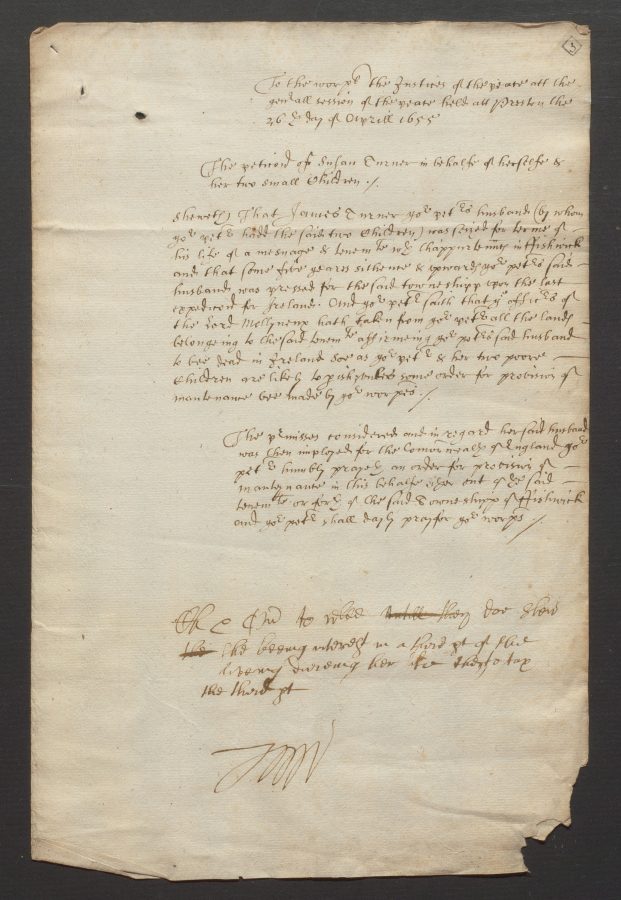 5
To the wor.pll the Justices of the peace att the
gen'all session of the peace held att Preston the
26th day of Aprill 1655
The peticion of Susan Turner in behalfe of herselfe &
her two small Children./
Sheweth That James Turner yor petrs husband (by whom
yor petr hadd the said two Children) was seised for terme of
his life of a mesuage & tenemte wth thappurtenncs in Fishwick
and that some five yeares sithence & upwards yor petrs said
husband was pressed for the said towneshipp upon the last
expedicion for Ireland. And yor petr saith that ye officrs of
the Lord Mollyneux hath taken from yor petr all the lands
belongeing to the said tenemte affirmeing yor petrs said husband
to bee dead in Ireland soe as yor petr & her two poore
Children are likely to perish unles some order for provision of
mantenance bee made by yor worpps./
The premisses considered and in regard her said husband
was then imployed for the Comonwealth of England yor
petr humbly prayeth an order for provision of
mantenance in this behalfe either out of the said
tenemte or forth of the said Towneshipp of Fishwick
and yor petr shall daily pray for yor worpps /
to doe shew
the she beeing interest in a third pt of the
liveing dureing her life
the third pt